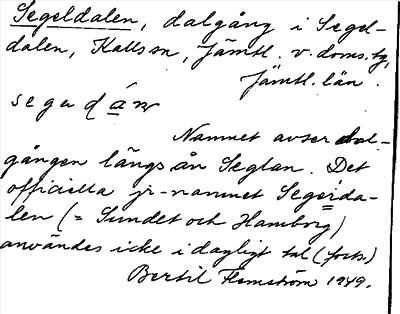 Segeldalen, dalgång i Segel-
dalen, Kalls sn, Jämtl. v. doms. tg,
Jämtl. län.
Namnet avser dal-
gången längs ån Seglan. Det
officiella jr-namnet Segerda-
len (= Sundet och Hamborg)
användes icke i dagligt tal (forts.)
Bertil Flemström 1949.